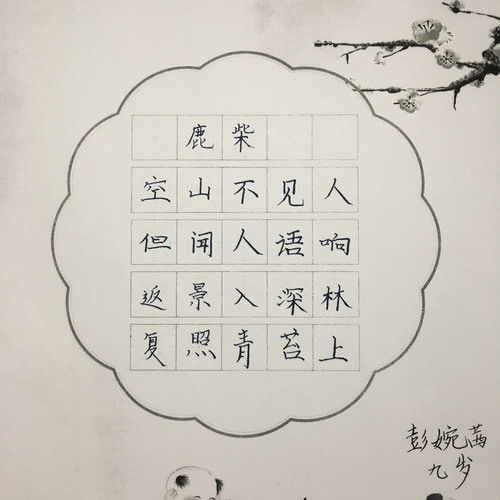 鹿柴
空山不见人
但闻人语响
返景入深林
复照青苔上
彭婉茜
九岁